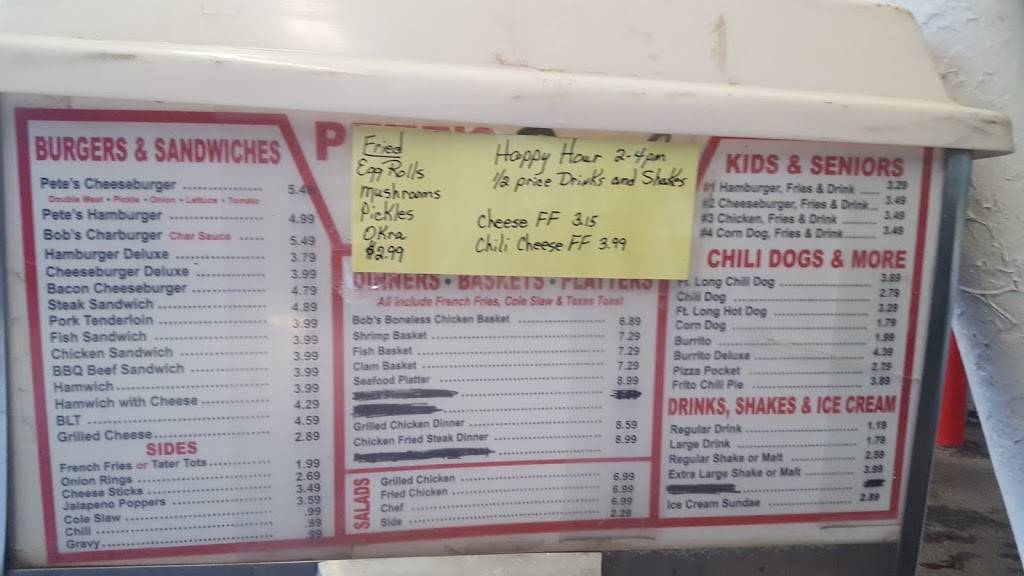 BURGERS & SANDWICHES
Pete's Cheeseburger 5.49
Double Meat • Pickle • Onion • Lettuce • Tomato
Pete's Hamburger 4.99
Bob's Charburger Char Sauce 5.49
Hamburger Deluxe 3.79
Cheeseburger Deluxe 3.99
Bacon Cheeseburger 4.79
Steak Sandwich 4.89
Pork Tenderloin 3.99
Fish Sandwich 3.99
Chicken Sandwich 3.99
BBQ Beef Sandwich 3.99
Hamwich 3.99
Hamwich with Cheese 4.29
BLT 4.59
Grilled Cheese 2.89
SIDES
French Fries or Tater Tots 1.99
Onion Rings 2.69
Cheese Sticks 3.49
Jalapeno Poppers 3.59
Cole Slaw .99
Chili .99
Gravy .99
Fried
Egg Rolls
Mushrooms
Pickles
Okra
$2.99
Happy Hour 2-4pm
1/2 price Drinks and Shakes
Cheese FF 3.15
Chili Cheese FF 3.99
DINNERS • BASKETS • PLATTERS
All include French Fries, Cole Slaw & Texas Toast
Bob's Boneless Chicken Basket 6.89
Shrimp Basket 7.29
Fish Basket 7.29
Clam Basket 7.29
Seafood Platter 8.99
Grilled Chicken Dinner 8.59
Chicken Fried Steak Dinner 8.99
SALADS
Grilled Chicken 6.99
Fried Chicken 6.99
Chef 6.99
Side 2.29
KIDS & SENIORS
#1 Hamburger, Fries & Drink 3.29
#2 Cheeseburger, Fries & Drink 3.49
#3 Chicken, Fries & Drink 3.49
#4 Corn Dog, Fries & Drink 3.49
CHILI DOGS & MORE
Ft. Long Chili Dog 3.89
Chili Dog 2.79
Ft. Long Hot Dog 3.29
Corn Dog 1.79
Burrito 1.99
Burrito Deluxe 4.39
Pizza Pocket 2.79
Frito Chili Pie 3.89
DRINKS, SHAKES & ICE CREAM
Regular Drink 1.19
Large Drink 1.79
Regular Shake or Malt 2.59
Extra Large Shake or Malt 3.99
Ice Cream Sundae 2.89